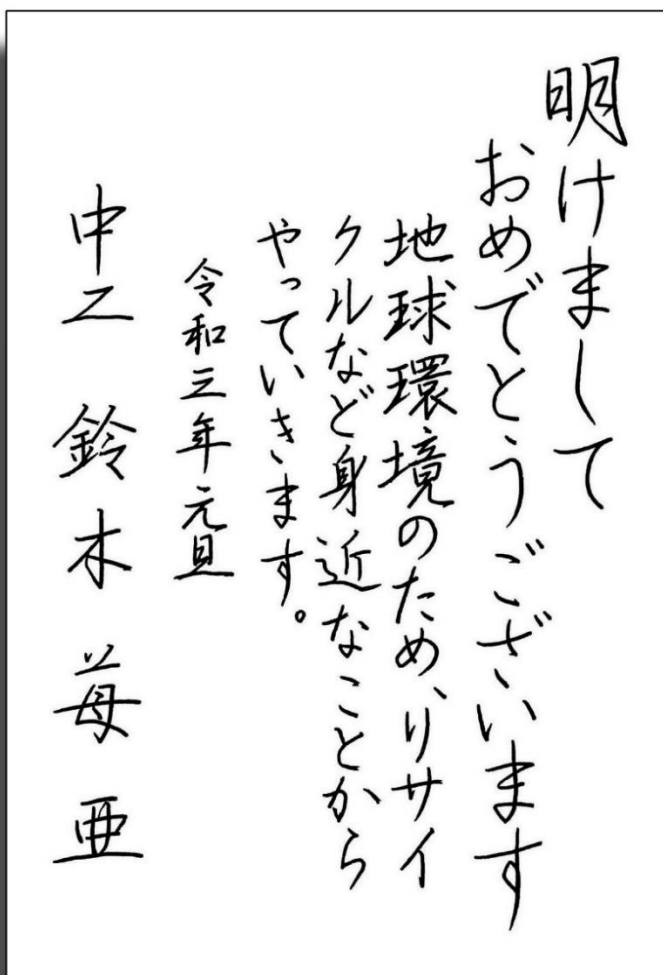 明けまして
おめでとうございます
地球環境のため、リサイ
クルなど身近なことから
やっていきます。
令和三年元旦
中二 鈴木 苺亜